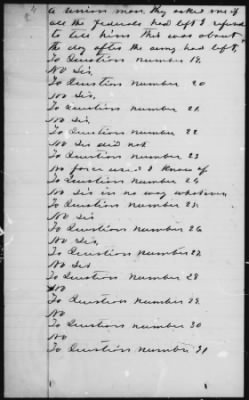 a union man, they asked me if
all the federals had left I refused
to tell him this was about
the day after the army had left,
To Question number 19.
No Sir,
To Question number 20
No Sir,
To Question number 21
No Sir
To Question number 22
No Sir did not
To Question number 23
No force used I know of
To Question number 24
No Sir in no way whatever
To Question number 25
No Sir
To Question number 26
No Sir,
To Question number 27
No Sir
To Question number 28
No
To Question number 29
No
To Question number 30
No
To Question number 31